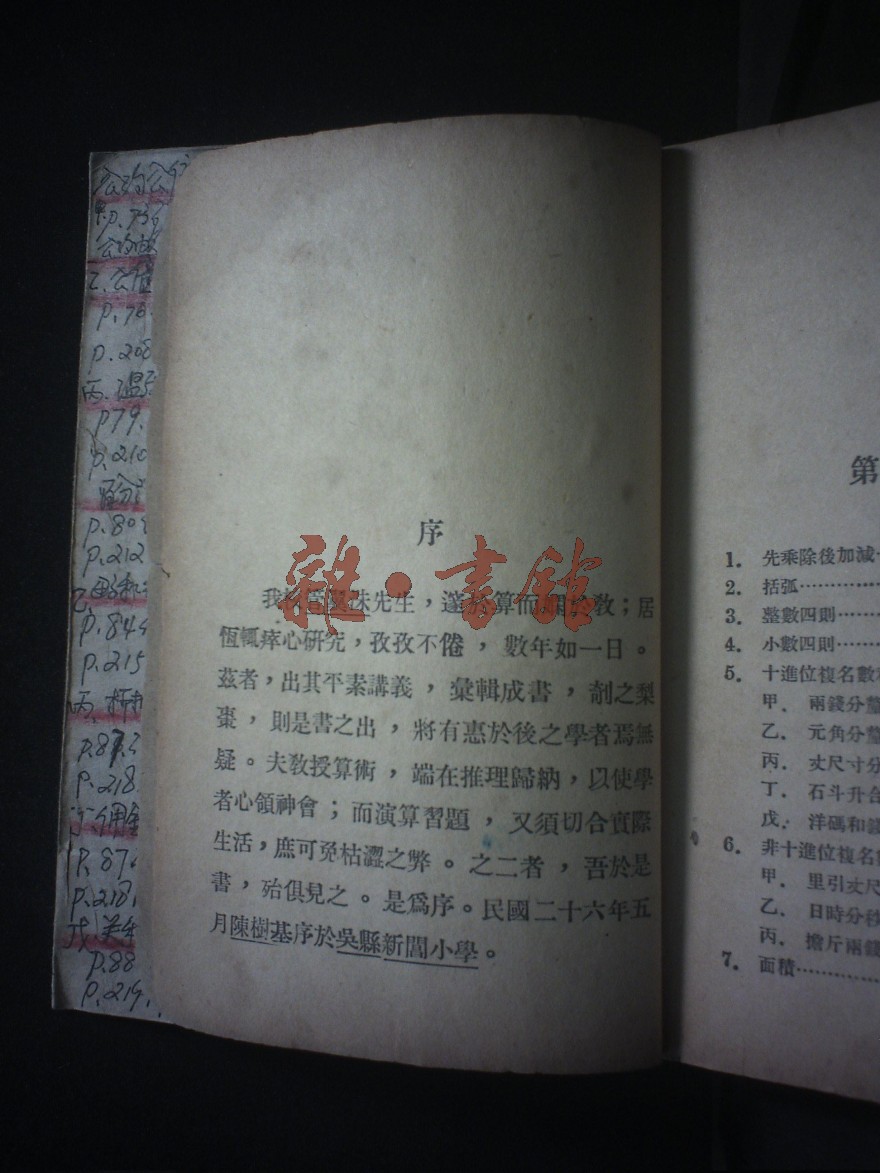 公約公
p.
乙.公
p.76
p.208
丙.温
p79.
p.210
p.80
p.212
p.84
p.215
丙.
p.87.
p.218
p.87.
p.218.
戊
p.88
p.219.
雜·書館
序
先生,邃於算而教;居
恆輒瘁心硏究,孜孜不倦,數年如一日。
茲者,出其平素講義,彙輯成書,剞之梨
棗,則是書之出,將有惠於後之學者焉無
疑。夫敎授算術,端在推理歸納,以使學
者心領神會;而演算習題,又須切合實際
生活,庶可免枯澀之弊。之二者,吾於是
書,殆俱見之。是爲序。民國二十六年五
月陳樹基序於吳縣新閶小學。
第
1. 先乘除後加減
2. 括弧
3. 整數四則
4. 小數四則
5. 十進位複名數
甲. 兩錢分釐
乙. 元角分釐
丙. 丈尺寸分
丁. 石斗升合
戊. 洋碼和
6. 非十進位複名數
甲. 里引丈尺
乙. 日時分秒
丙. 擔斤兩錢
7. 面積